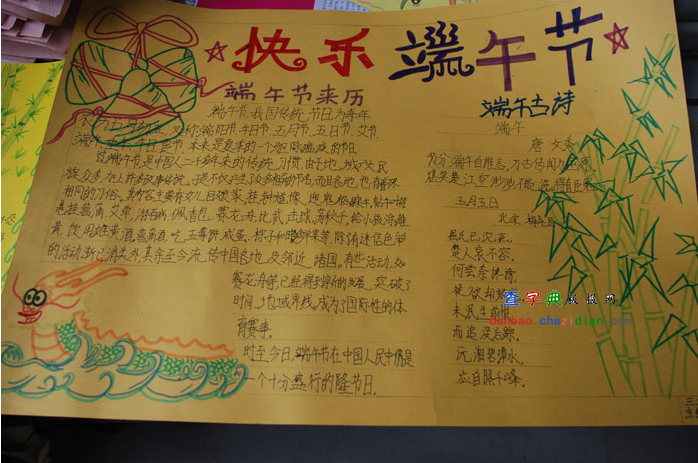 快乐端午节
端午节来历
端午节,我国传统节日,为每年
农历五月初五,又称端阳节、午日节、五月节、五日节、艾节、
夏节,本来是夏季的一个驱除瘟疫的节日
过端午节,是中国人二千多年来的传统习惯,由于地域广大,民
族众多,加上许多故事传说,于是不仅产生了众多相异的节名,而且各地也有着不
相同的习俗。其内容主要有:女儿回娘家,挂钟馗像,迎鬼船、躲午,帖午叶符,
悬挂菖蒲、艾草,游百病,佩香包,赛龙舟,比武,击球,荡秋千,给小孩涂雄
黄,饮用雄黄酒、菖蒲酒,吃五毒饼、咸蛋、粽子和时令鲜果等,除了有迷信色彩
的活动渐已消失外,其余至今流传中国各地及邻近诸国。有些活动,如
赛龙舟等,已经得到新的发展,突破了
时间、地域界线,成为了国际性的体
育赛事。
时至今日,端午节在中国人民中仍是
一个十分盛行的隆节日.
端午古诗
端午
唐 文秀
节分端午自谁言,万古传闻为屈原
堪笑楚江空渺渺,不能洗得直臣冤
五月五日
北宋 梅尧臣
屈氏已沉死,
楚人哀不容。
何尝奈谗谤,
徒欲却蛟龙
未泯生前恨,
而追没后踪。
沅湘碧潭水,
应自照千峰。
查字典 板报网
banbao.chazidian.com
三